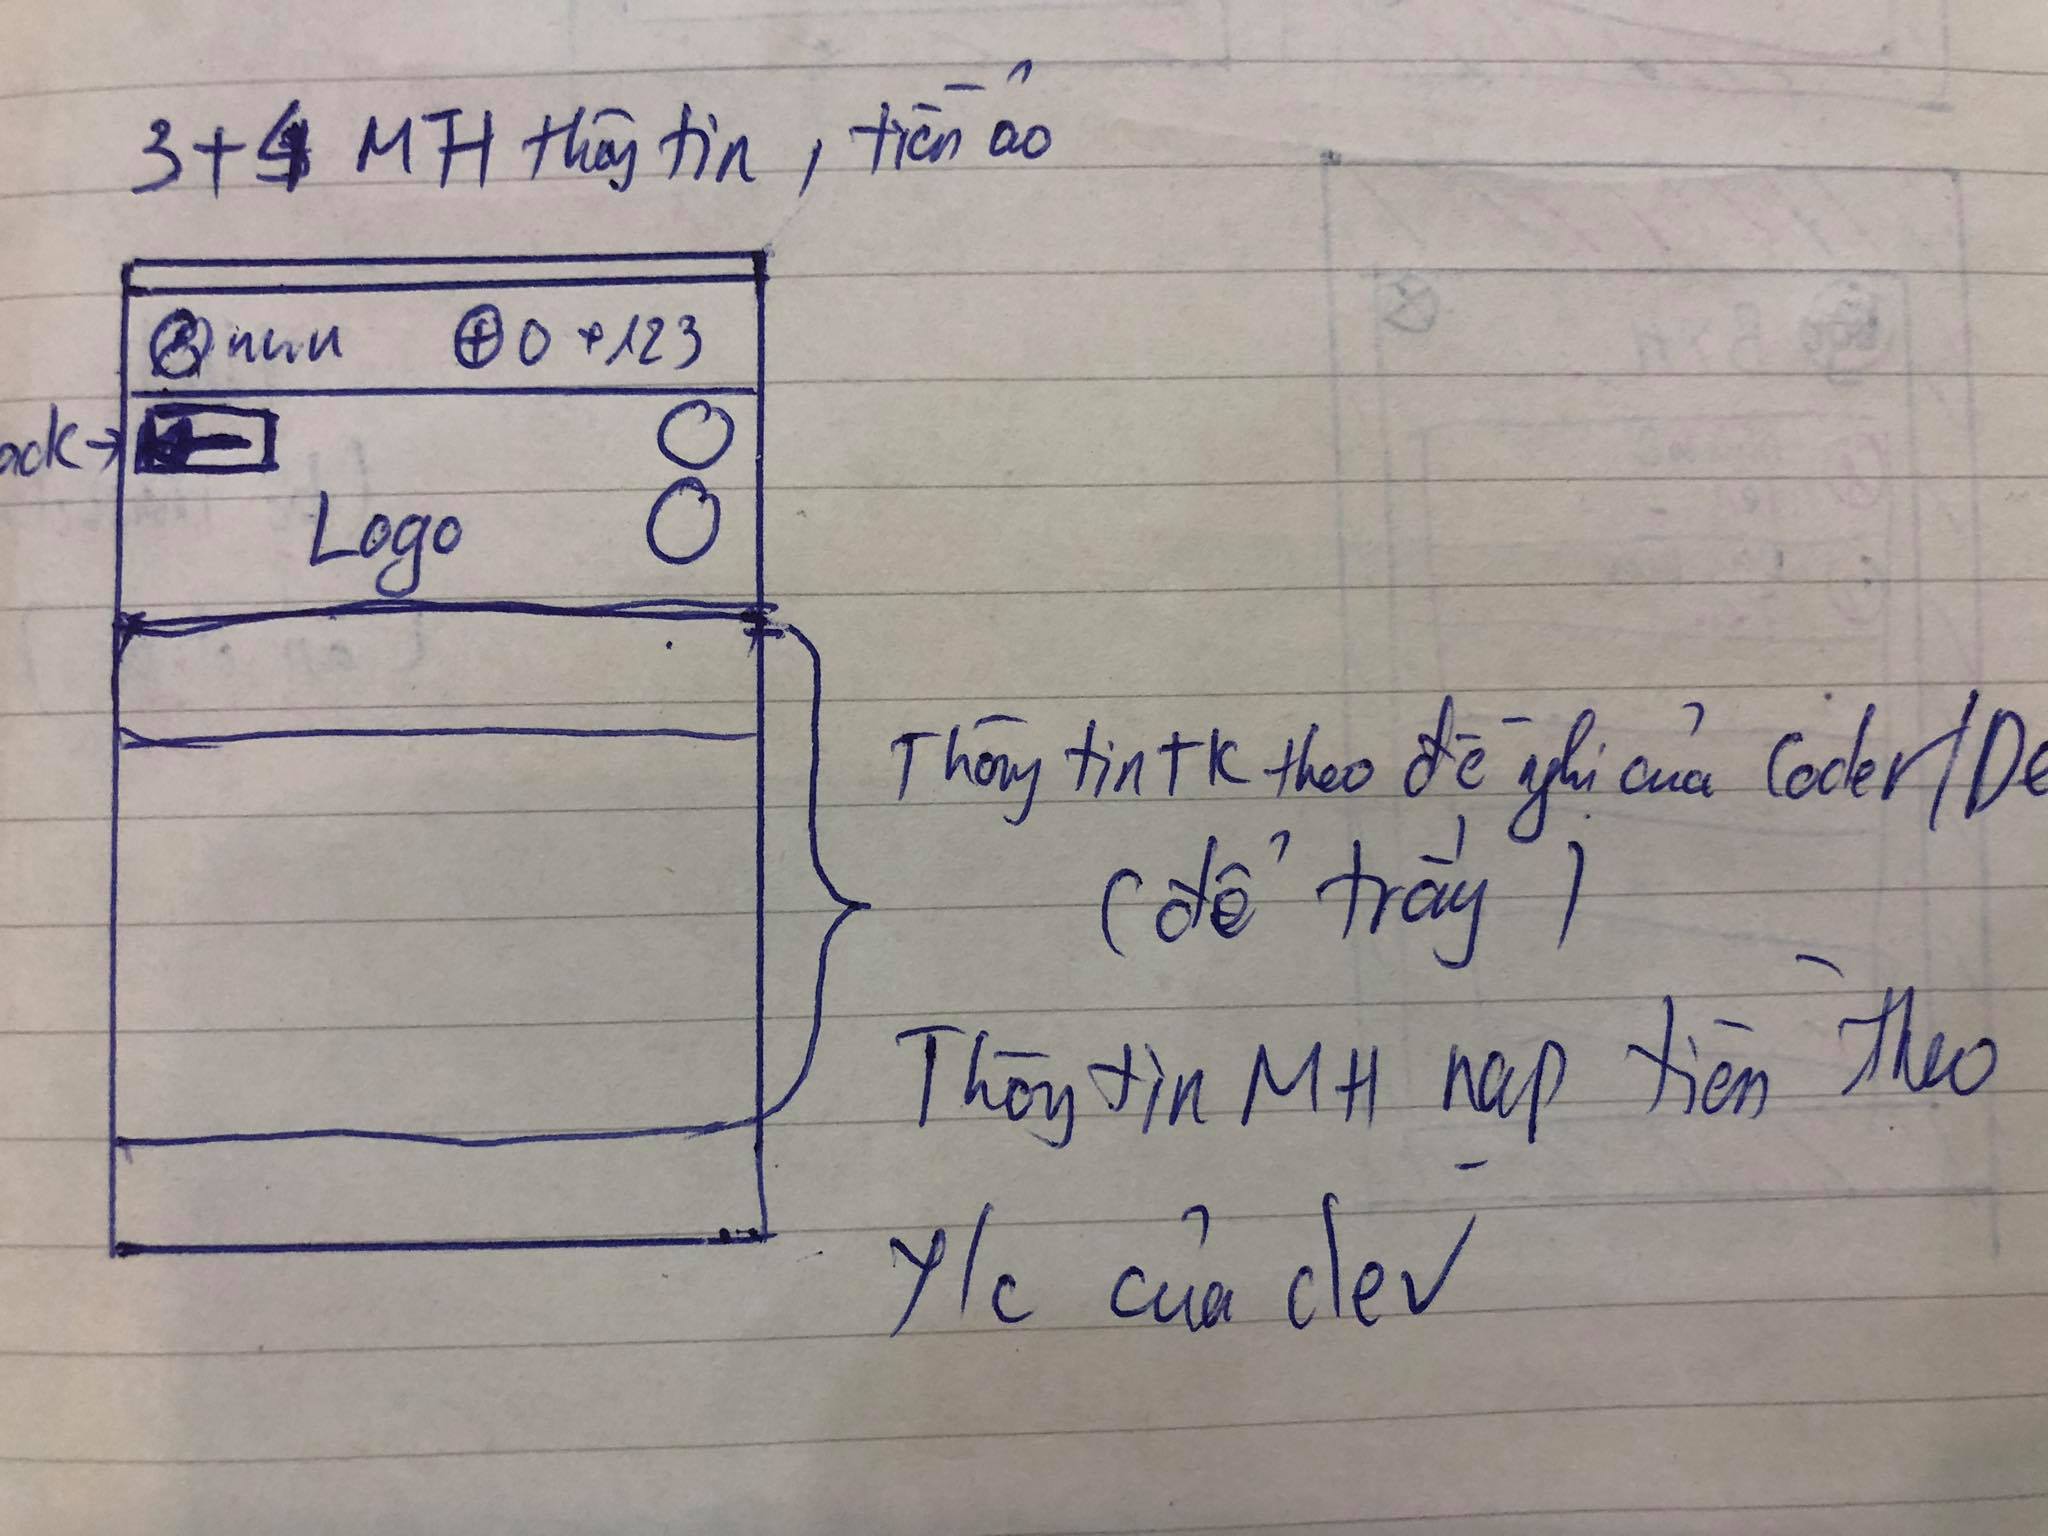 3+4 MH thông tin, tiền ảo
nnn ⊕ 0 +123
ack →
Logo
Thông tin TK theo đề nghị của Coder/De
(để trống)
Thông tin MH nạp tiền theo
Y/c của dev